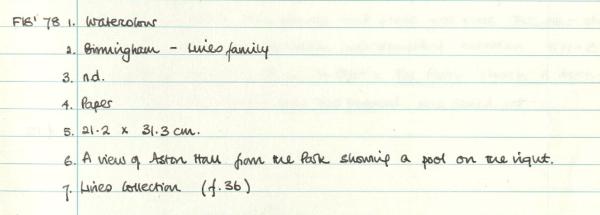 FIS' 78 1. Watercolour
2. Birmingham - Lines family
3. n.d.
4. Paper
5. 21.2 x 31.3 cm.
6. A view of Aston Hall from the Park showing a pool on the right.
7. Lines Collection (f.36)